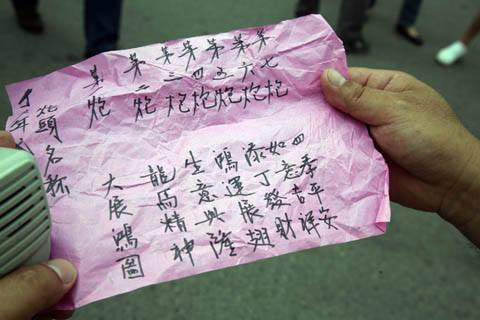 年
炮頭名稱
第一炮 大展鴻圖
第二炮 龍馬精神
第三炮 生意興隆
第四炮 鴻運展翅
第五炮 添丁發財
第六炮 如意吉祥
第七炮 四季平安